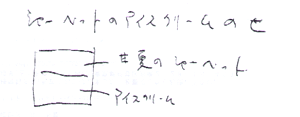 シャーベットのアイスクリームのせ
甘夏のシャーベット
アイスクリーム